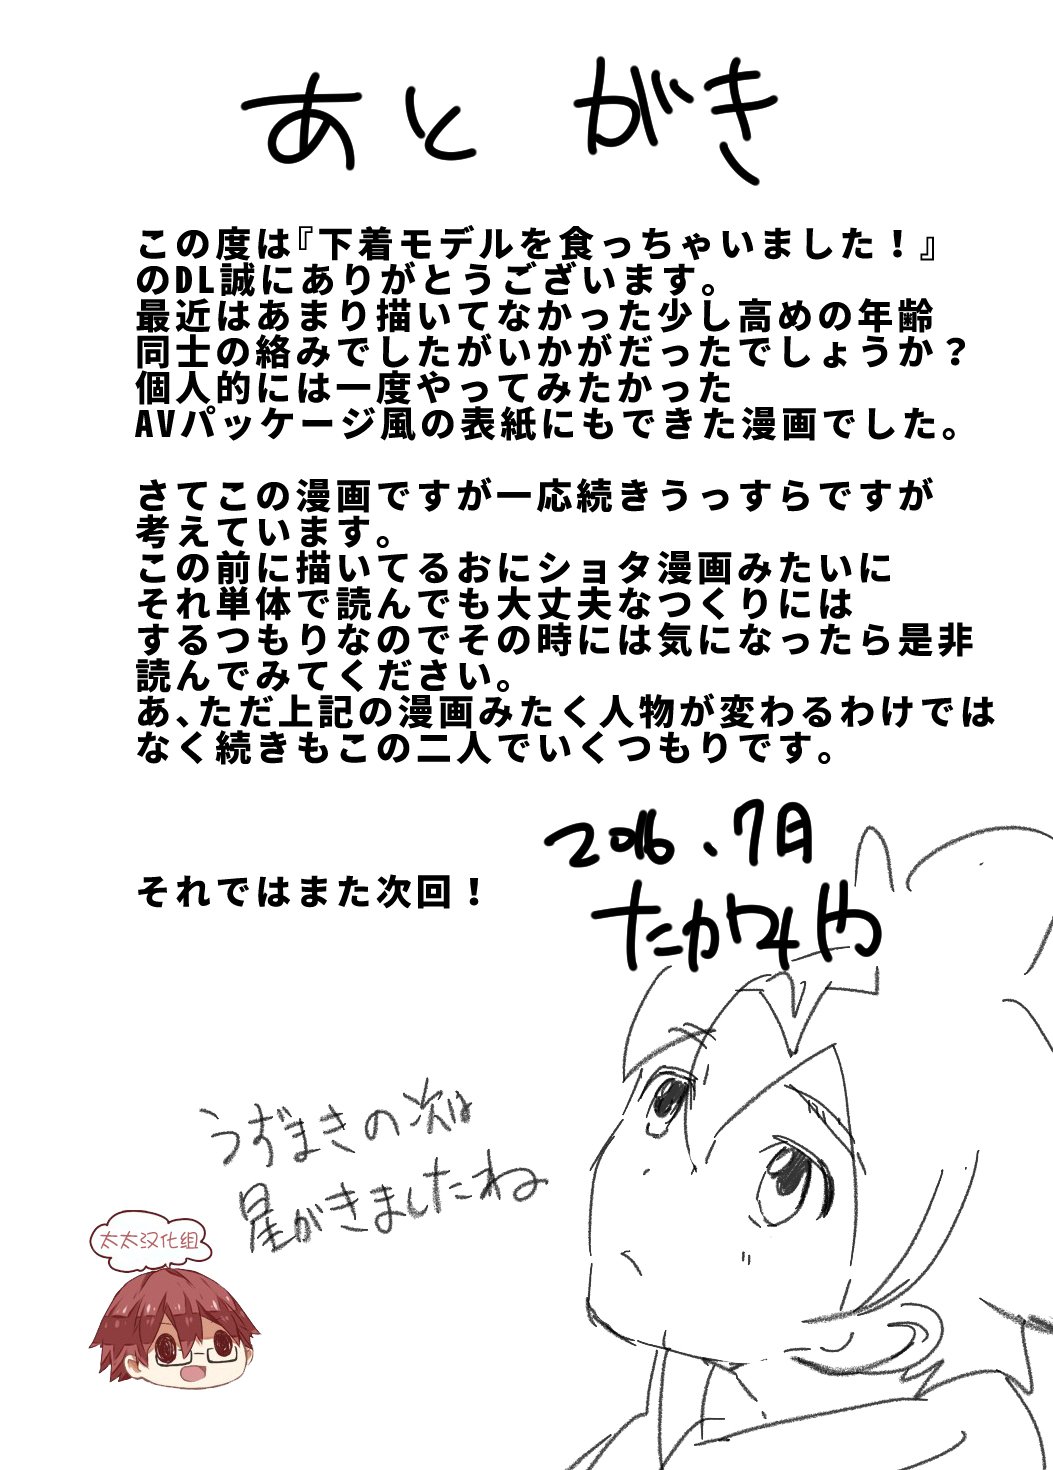 あとがき
この度は『下着モデルを食っちゃいました！』
のDL誠にありがとうございます。
最近はあまり描いてなかった少し高めの年齢
同士の絡みでしたがいかがだったでしょうか？
個人的には一度やってみたかった
AVパッケージ風の表紙にもできた漫画でした。
さてこの漫画ですが一応続きうっすらですが
考えています。
この前に描いてるおにショタ漫画みたいに
それ単体で読んでも大丈夫なつくりには
するつもりなのでその時には気になったら是非
読んでみてください。
あ、ただ上記の漫画みたく人物が変わるわけでは
なく続きもこの二人でいくつもりです。
それではまた次回！
2016.7月
うずまきの次は
星がきましたね
太太汉化组